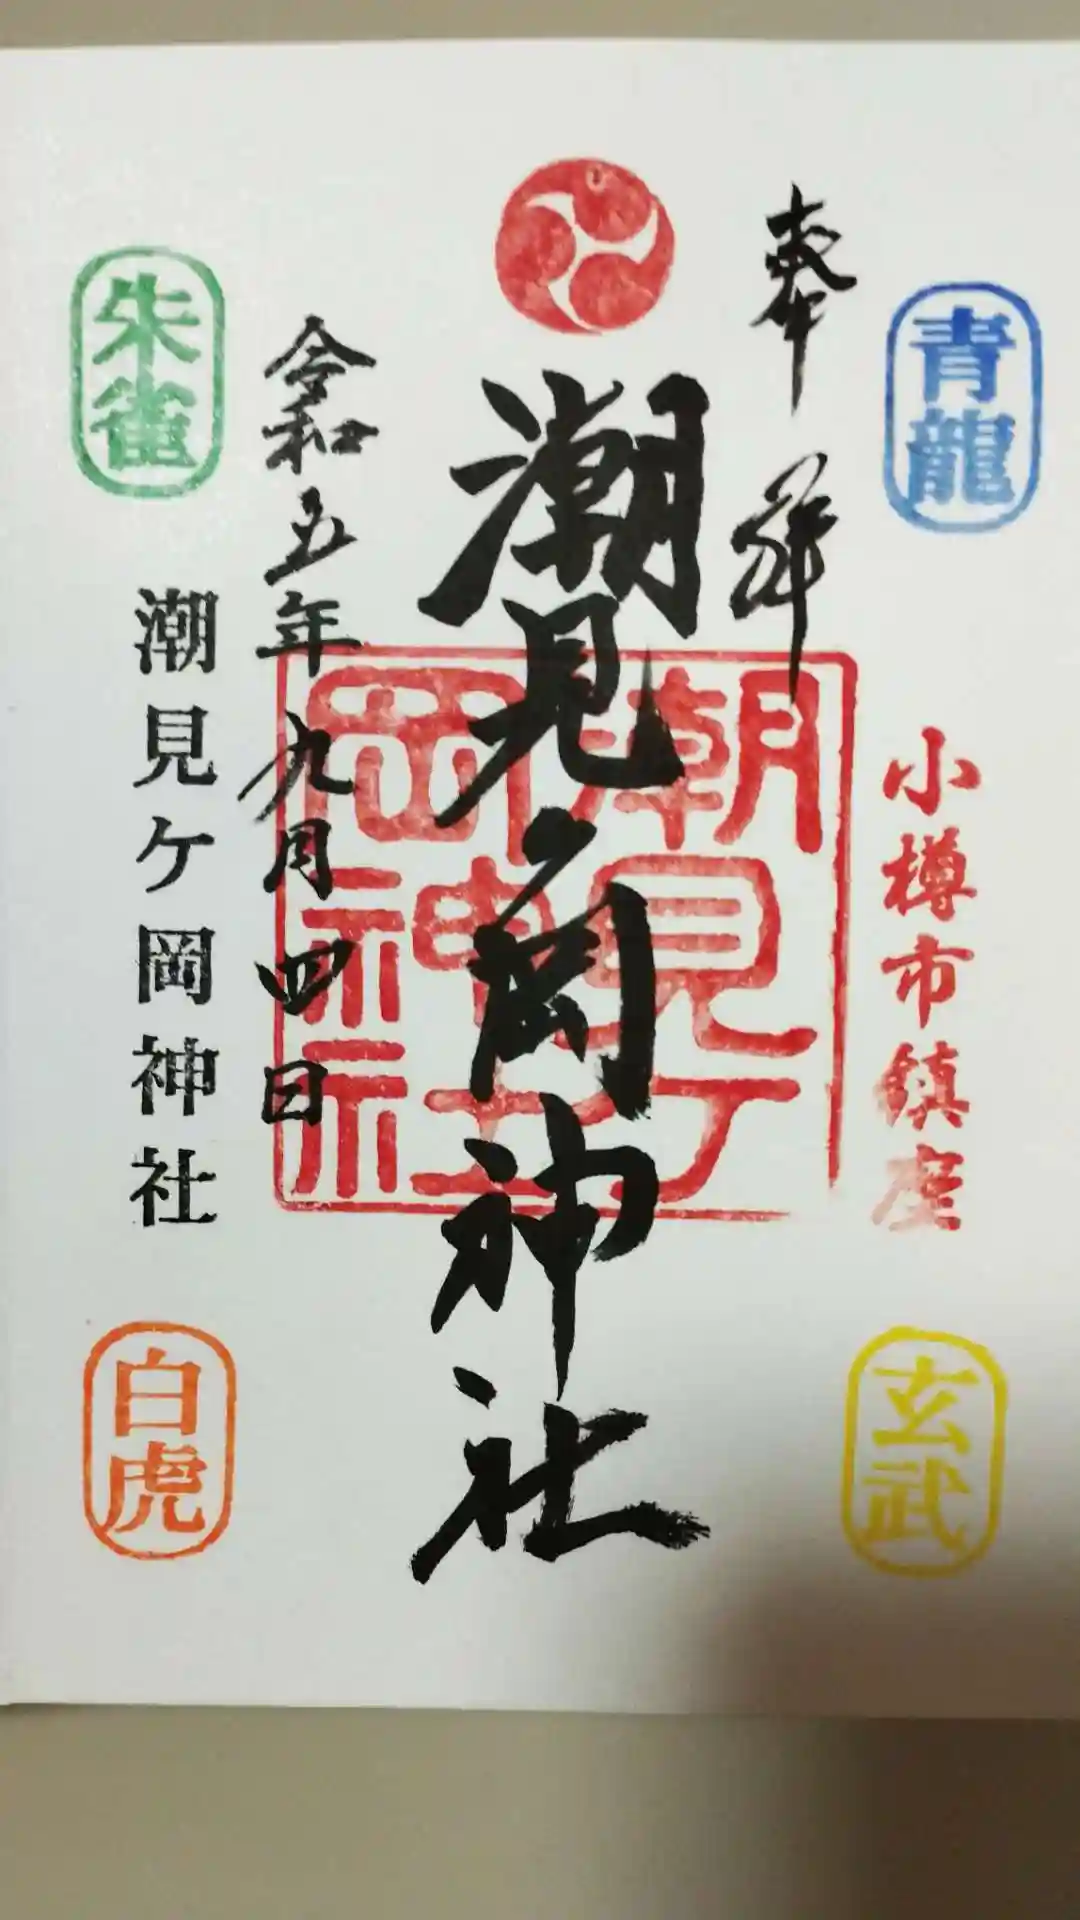 青龍
小樽市鎮座
玄武
奉拝
潮見ヶ岡神社
潮見ケ岡神社
令和五年九月四日
朱雀
潮見ケ岡神社
白虎